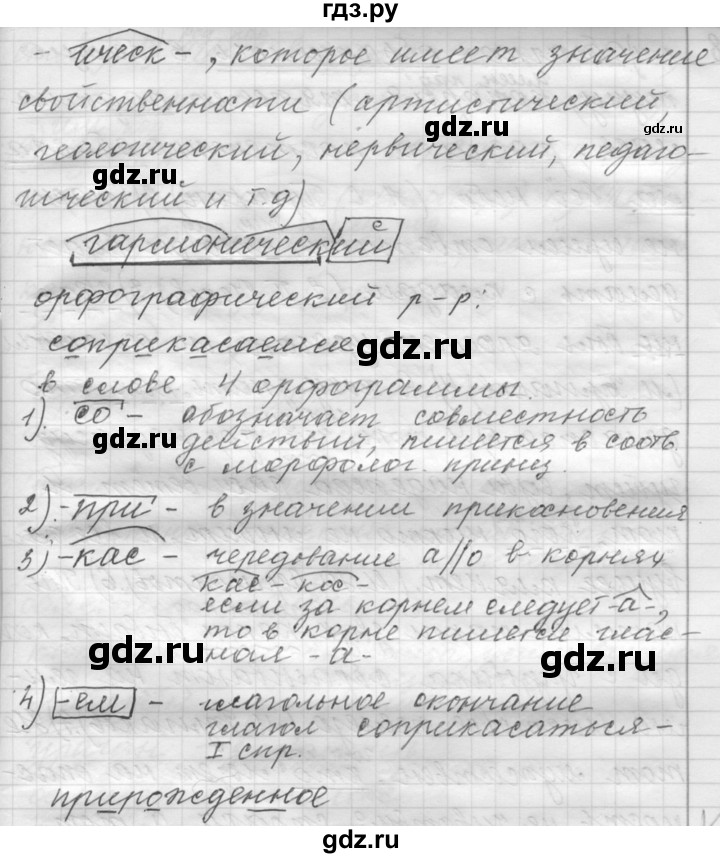 гдз.ру
- ическ - , которое имеет значение
свойственности (артистический,
gdz.ru
gdz.ru
геологический, нервический, педаго-
gdz.ru
gdz.ru
гический и т.д)
гармонический с
орфографический р-р:
соприкасаемся
gdz.ru
в слове 4 орфограммы.
1). со - обозначает совместность
действий, пишется в соотв.
с морфолог. принц.
2). -при - в значении прикосновения
gdz.ru
3) -кас - чередование а//о в корнях
кас - кос -
если за корнем следует -а-,
то в корне пишется глас-
ная -а-
gdz.ru
gdz.ru
4) -ем - глагольное окончание
глагол соприкасаться -
I спр.
gdz.ru
прирожденное
gdz.ru